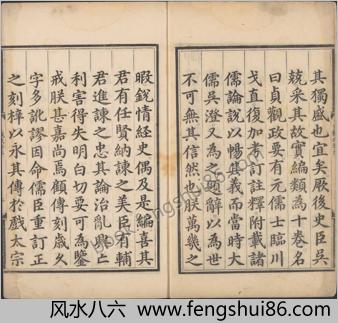 其獨盛也宜矣厥後史臣吳
兢采其故實編類為十卷名
曰貞觀政要有元儒士臨川
戈直復加考訂註釋附載諸
儒論說以暢其義而當時大
儒吳澄又為之題辭以為世
不可無其信然也朕萬幾之
暇銳情經史偶及是編喜其
君有任賢納諫之美臣有輔
君進諫之忠其論治亂興亡
利害得失明白切要可為鑒
戒朕甚嘉尚焉顧傳刻歲久
字多訛謬因命儒臣重訂正
之刻梓以永其傳於戲太宗
风水八六 www.fengshui86.com